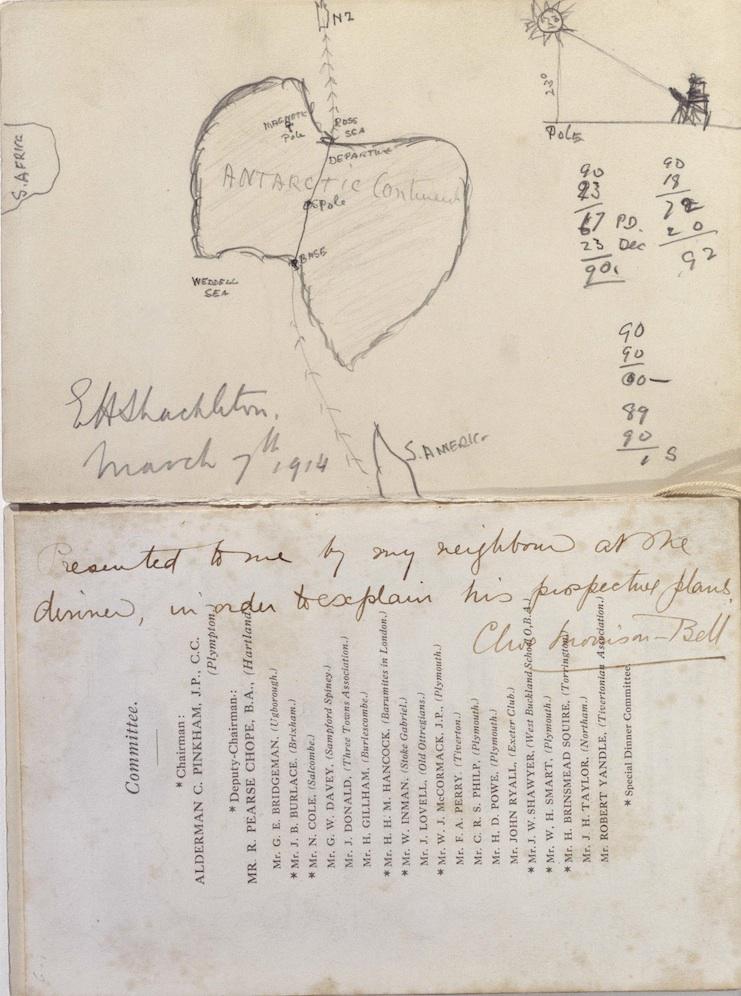 NZ
MAGNETIC
Pole
ROSS
SEA
DEPARTURE
ANTARCTIC Continent
Pole
BASE
WEDDELL
SEA
S. AFRICA
S. AMERICA
23°
POLE
90
23
67 P.D.
23 Dec
90
90
18
72
20
92
90
90
00 —
89
90
1 S
EHShackleton.
March 7th 1914
Presented to me by my neighbour at the
dinner, in order to explain his prospective plans.
Clive Morrison-Bell
Committee.
* Chairman:
ALDERMAN C. PINKHAM, J.P., C.C.
(Plympton)
* Deputy-Chairman:
MR R. PEARSE CHOPE, B.A., (Hartland)
Mr. G. E. BRIDGEMAN, (Ugborough.)
* Mr. J. B. BURLACE, (Brixham.)
* Mr. N. COLE, (Salcombe.)
Mr. G. W. DAVEY, (Sampford Spiney.)
Mr. J. DONALD, (Three Towns Association.)
Mr. H. GILLHAM, (Burlescombe.)
* Mr. H. H. M. HANCOCK, (Barumites in London.)
* Mr. W. INMAN, (Stoke Gabriel.)
Mr. J. LOVELL, (Old Ottregians.)
* Mr. W. J. McCORMACK, J.P., (Plymouth.)
Mr. F. A. PERRY, (Tiverton.)
Mr. C. R. S. PHILP, (Plymouth.)
Mr. H. D. POWE, (Plymouth.)
Mr. JOHN RYALL, (Exeter Club.)
* Mr. J. W. SHAWYER, (West Buckland School O.B.A.)
* Mr. W. H. SMART, (Plymouth.)
* Mr. H. BRINSMEAD SQUIRE, (Torrington)
Mr. J. H. TAYLOR, (Northam.)
Mr. ROBERT YANDLE, (Tivertonian Association.)
* Special Dinner Committee.